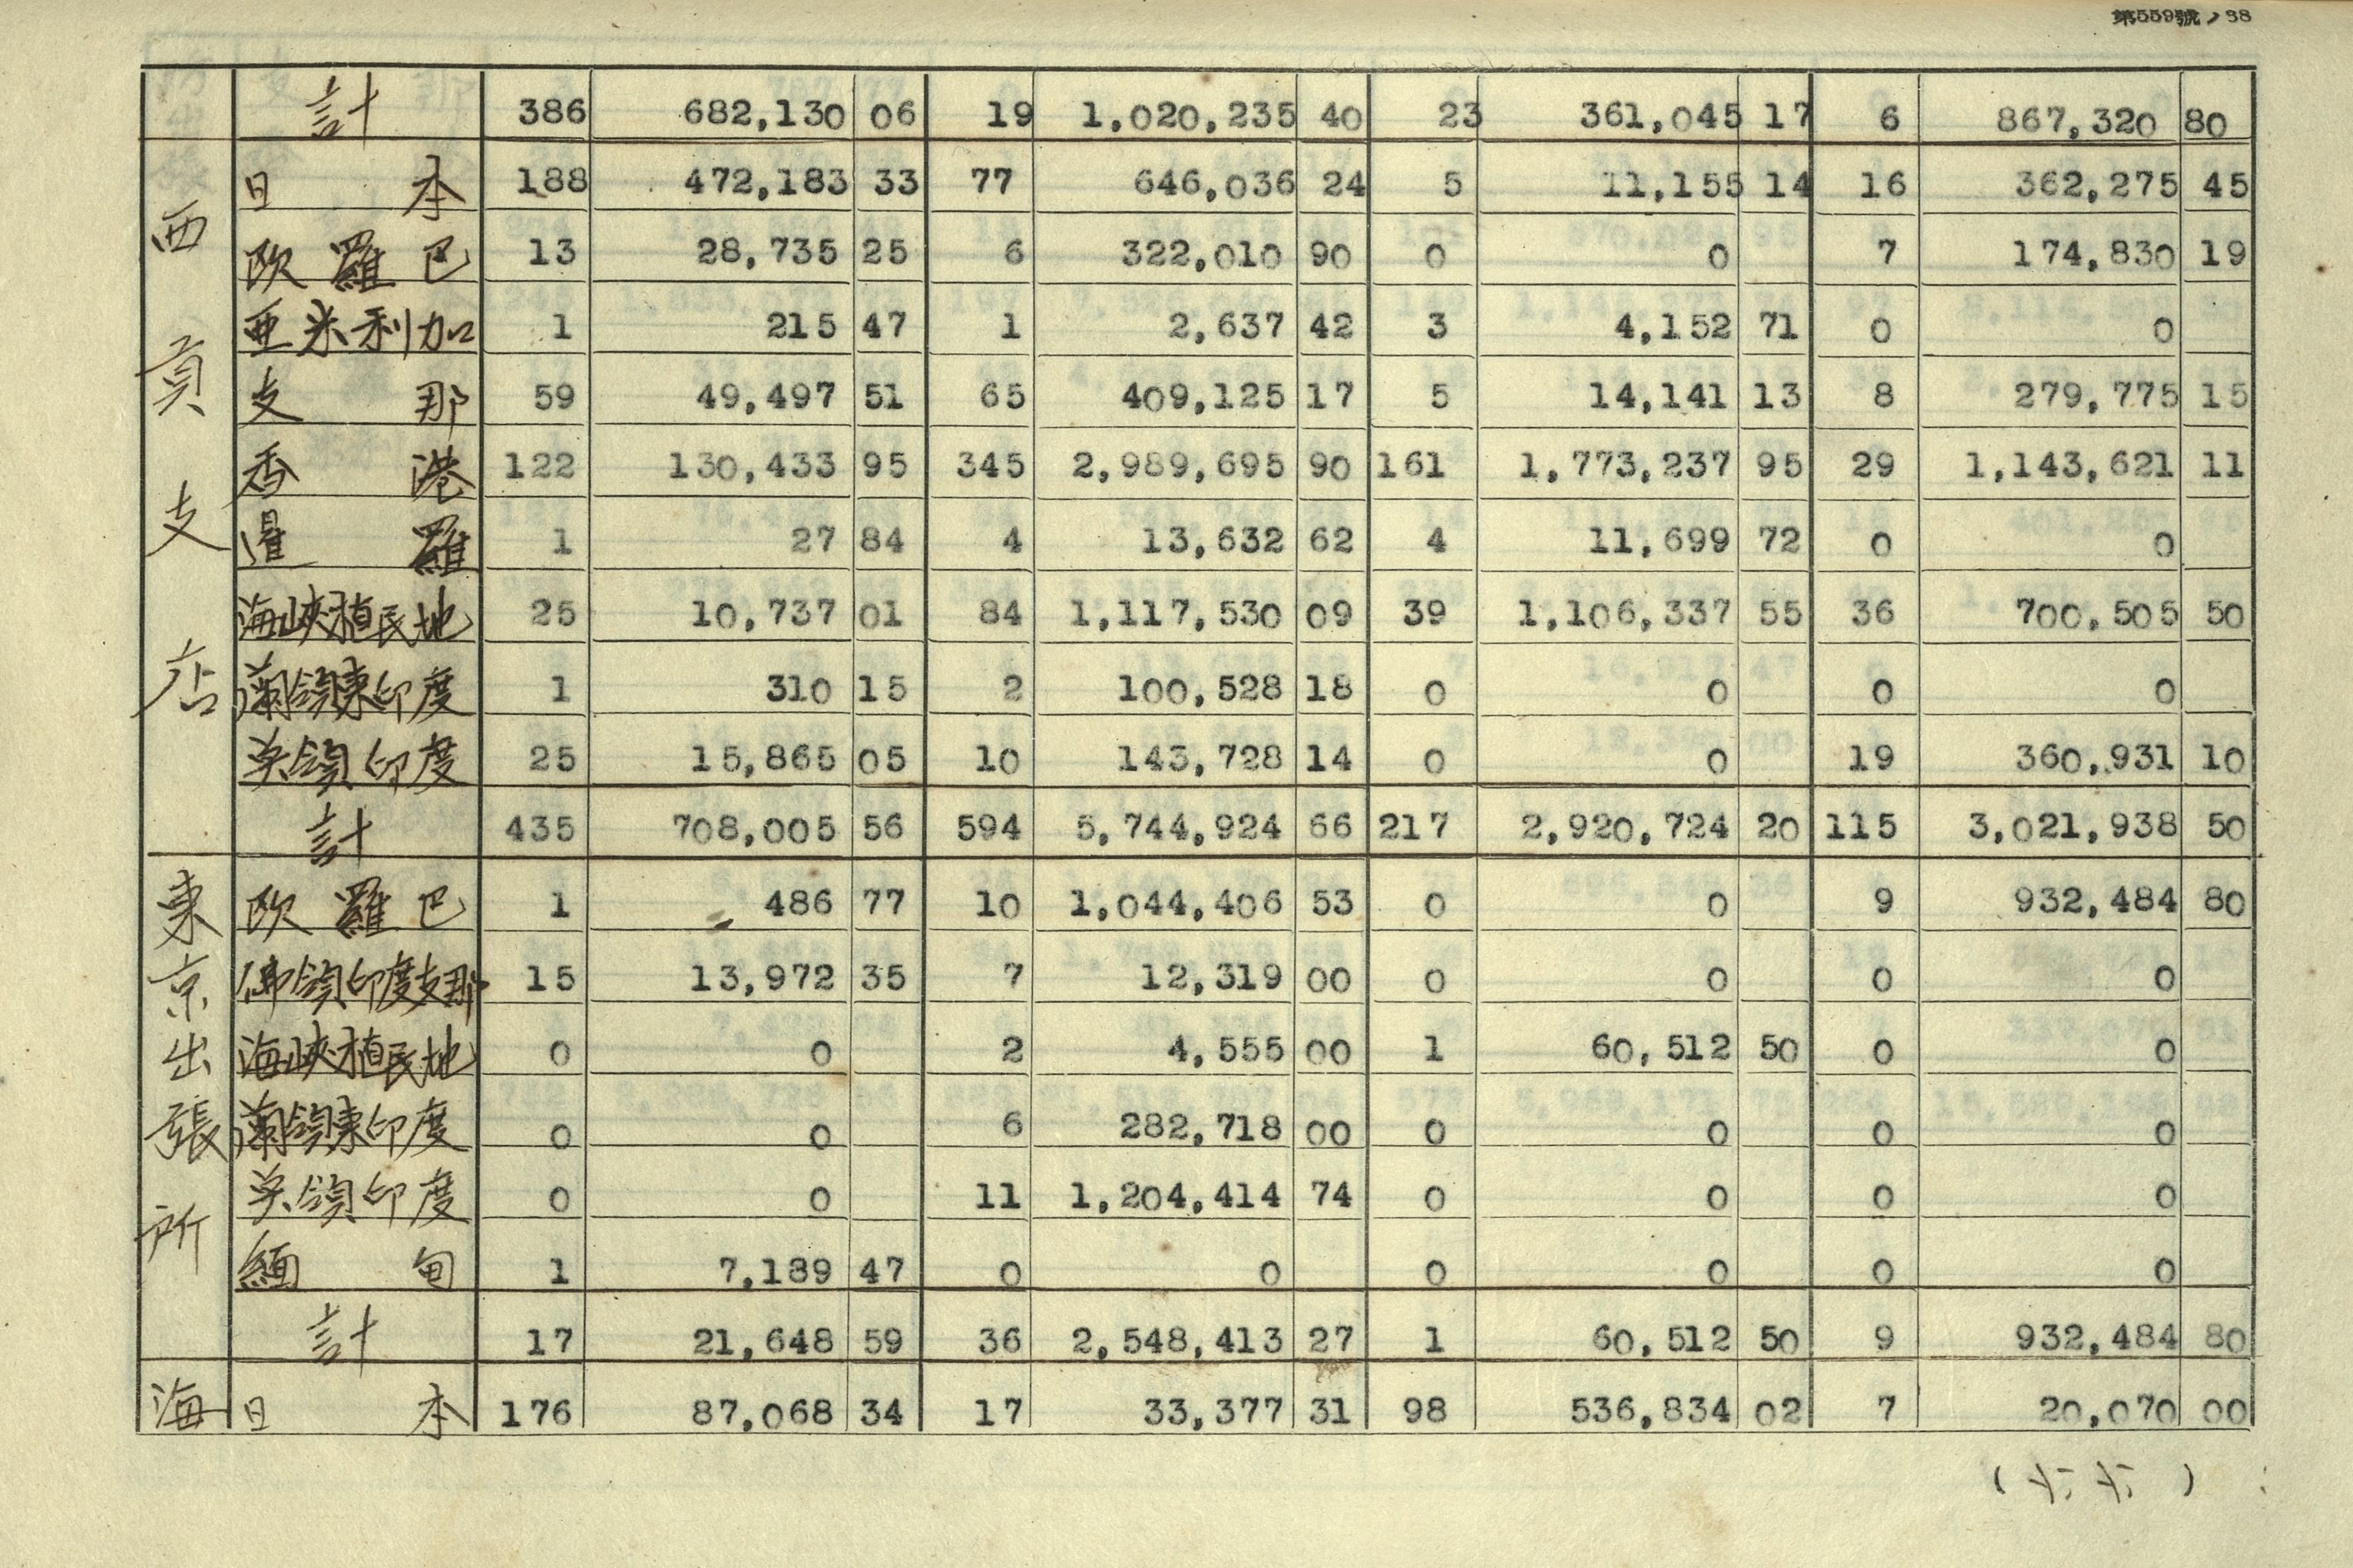 第559號ノ38
計 386 682,130 06 19 1,020,235 40 23 361,045 17 6 867,320 80
西貢支店
日本 188 472,183 33 77 646,036 24 5 11,155 14 16 362,275 45
欧羅巴 13 28,735 25 6 322,010 90 0 0 7 174,830 19
亜米利加 1 215 47 1 2,637 42 3 4,152 71 0 0
支那 59 49,497 51 65 409,125 17 5 14,141 13 8 279,775 15
香港 122 130,433 95 345 2,989,695 90 161 1,773,237 95 29 1,143,621 11
暹羅 1 27 84 4 13,632 62 4 11,699 72 0 0
海峡植民地 25 10,737 01 84 1,117,530 09 39 1,106,337 55 36 700,505 50
蘭領東印度 1 310 15 2 100,528 18 0 0 0 0
英領印度 25 15,865 05 10 143,728 14 0 0 19 360,931 10
計 435 708,005 56 594 5,744,924 66 217 2,920,724 20 115 3,021,938 50
東京出張所
欧羅巴 1 486 77 10 1,044,406 53 0 0 9 932,484 80
佛領印度支那 15 13,972 35 7 12,319 00 0 0 0 0
海峡植民地 0 0 2 4,555 00 1 60,512 50 0 0
蘭領東印度 0 0 6 282,718 00 0 0 0 0
英領印度 0 0 11 1,204,414 74 0 0 0 0
緬甸 1 7,189 47 0 0 0 0 0 0
計 17 21,648 59 36 2,548,413 27 1 60,512 50 9 932,484 80
海 日本 176 87,068 34 17 33,377 31 98 536,834 02 7 20,070 00
(六六)